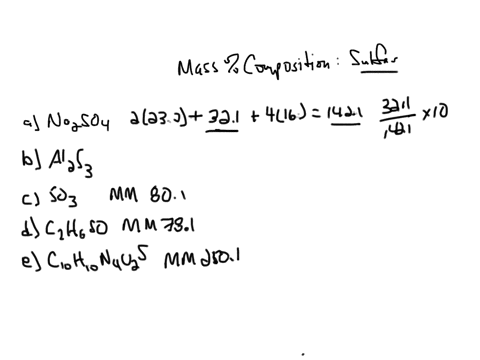 Mass % Composition: Sulfur
a) Na₂SO₄ 2(23.0) + 32.1 + 4(16) = 142.1 32.1/142.1 ×10
b) Al₂S₃
c) SO₃ MM 80.1
d) C₂H₆SO MM 78.1
e) C₁₀H₁₀N₄O₂S MM 250.1